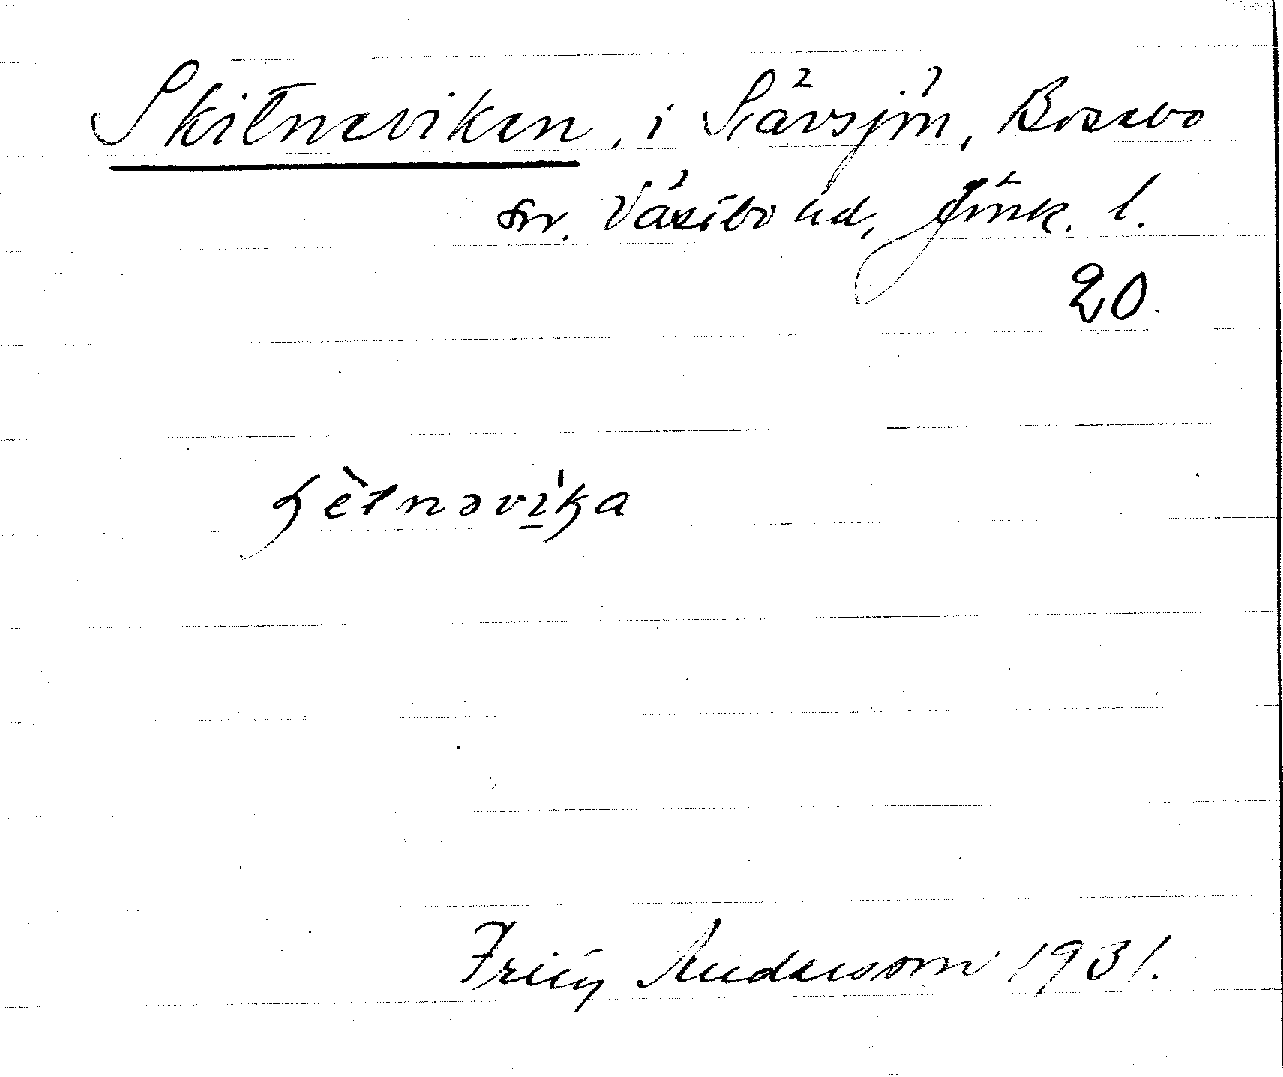 Skitneviken, i Rävsjön, Bosebo
sn. Västbo hd, Jönk. l.
20.
ʃètnəvìka
Fritz Andersson 1931.